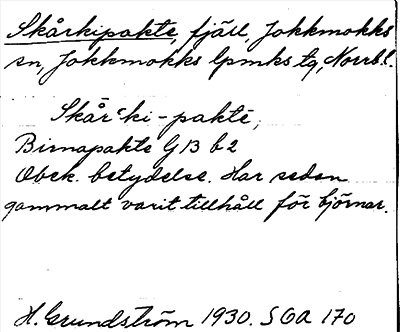 Skårkipakte, fjäll, Jokkmokks
sn, Jokkmokks lpmks tg, Norrb.l.
Skår'ki-pakte,
Birnapakte G 13 b 2
Obek. betydelse. Har sedan
gammalt varit tillhåll för björnar.
H. Grundström 1930. SOA 170